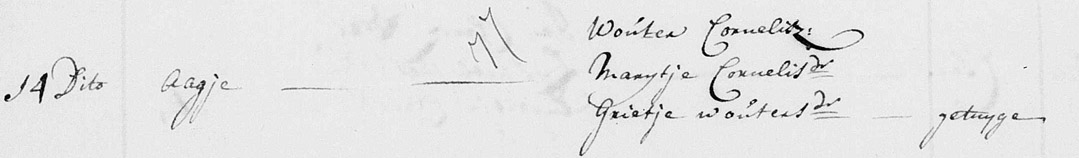 Wouter Cornelisz:
14 Dito Aagje Marytje Cornelisdr
Grietje woutersdr getuyge